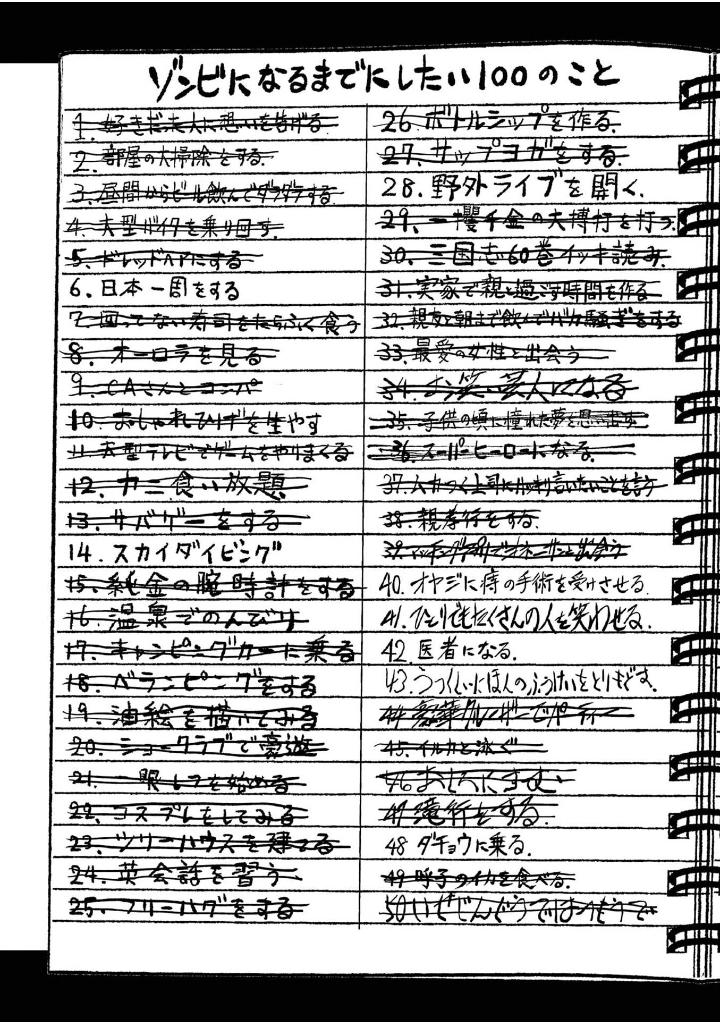 ゾンビになるまでにしたい100のこと
1. 好きだった人に想いを告げる
2. 部屋の大掃除をする.
3. 昼間からビール飲んでダラダラする
4. 大型バイクを乗り回す.
5. ドレッドヘアにする
6. 日本一周をする
7. 回ってない寿司をたらふく食う
8. オーロラを見る
9. CAさんとコンパ
10. おしゃれひげを生やす
11. 大型テレビでゲームをやりまくる
12. カニ食い放題
13. サバゲーをする
14. スカイダイビング
15. 純金の腕時計をする
16. 温泉でのんびり
17. キャンピングカーに乗る
18. ベランピングをする
19. 油絵を描いてみる
20. ショークラブで豪遊
21. 一眼レフを始める
22. コスプレをしてみる
23. ツリーハウスを建てる
24. 英会話を習う
25. フリーハグをする
26. ボトルシップを作る.
27. サップヨガをする.
28. 野外ライブを開く.
29. 一攫千金の大博打を打つ.
30. 三国志60巻イッキ読み.
31. 実家で親と過ごす時間を作る
32. 親友と朝まで飲んでバカ騒ぎをする
33. 最愛の女性と出会う
34. お笑い芸人になる
35. 子供の頃に憧れた夢を思い出す.
36. スーパーヒーローになる.
37. ムカつく上司にハッキリ言いたいことを言う
38. 親孝行をする.
39. マッチングアプリでオネーサンと出会う
40. オヤジに痔の手術を受けさせる.
41. ひとりでもたくさんの人を笑わせる.
42. 医者になる.
43. うつくしいにほんのふうけいをとりもどす.
44. 豪華クルーザーでパーティー
45. イルカと泳ぐ
46 おしろにすむ
47 滝行をする.
48 ダチョウに乗る.
49 呼子のイカを食べる.
50 いせじんぐうではつもうで